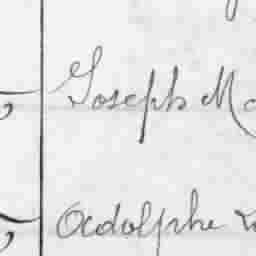 Joseph
Adolphe